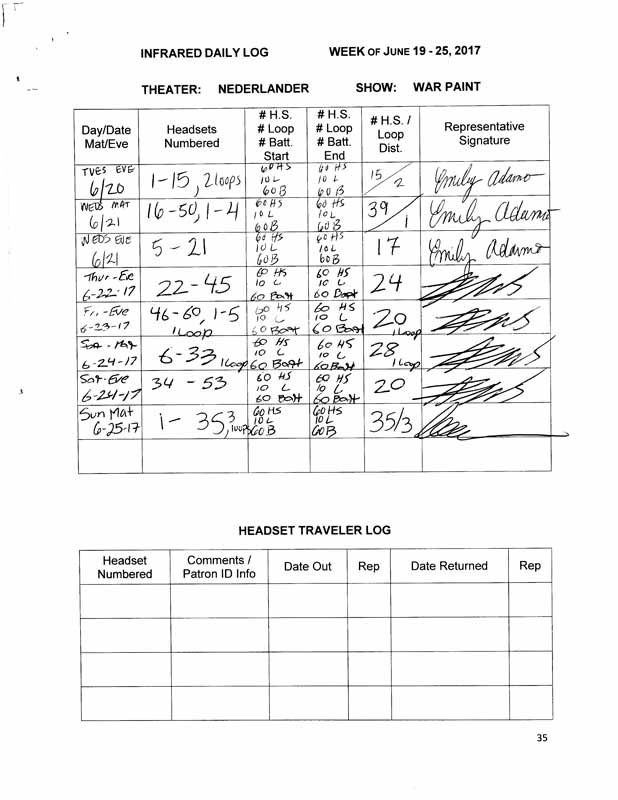 INFRARED DAILY LOG WEEK OF JUNE 19 - 25, 2017
THEATER: NEDERLANDER SHOW: WAR PAINT
Day/Date Mat/Eve
Headsets Numbered
# H.S. # Loop # Batt. Start
# H.S. # Loop # Batt. End
# H.S. / Loop Dist.
Representative Signature
TUES EVE 6/20
1-15, 2 loops
60 HS 10 L 60 B
60 HS 10 L 60 B
15/2
Emily Adamo
WEDS MAT 6/21
16-50, 1-4
60 HS 10 L 60B
60 HS 10 L 60B
39/1
Emily Adamo
WEDS EVE 6/21
5 - 21
60 HS 10 L 60B
60 HS 10 L 60B
17
Emily Adamo
Thur - Eve 6-22-17
22 - 45
60 HS 10 L 60 Batt
60 HS 10 L 60 Batt
24
Fri. - Eve 6-23-17
46-60, 1-5 1 Loop
60 HS 10 L 60 Batt
60 HS 10 L 60 Batt
20 1 Loop
Sat - Mat 6-24-17
6-33 1 Loop
60 HS 10 L 60 Batt
60 HS 10 L 60 Batt
28 1 Loop
Sat-Eve 6-24-17
34 - 53
60 HS 10 L 60 Batt
60 HS 10 L 60 Batt
20
Sun Mat 6-25-17
1 - 35, 3 loops
60 HS 10 L 60B
60 HS 10 L 60B
35/3
HEADSET TRAVELER LOG
Headset Numbered
Comments / Patron ID Info
Date Out
Rep
Date Returned
Rep
35